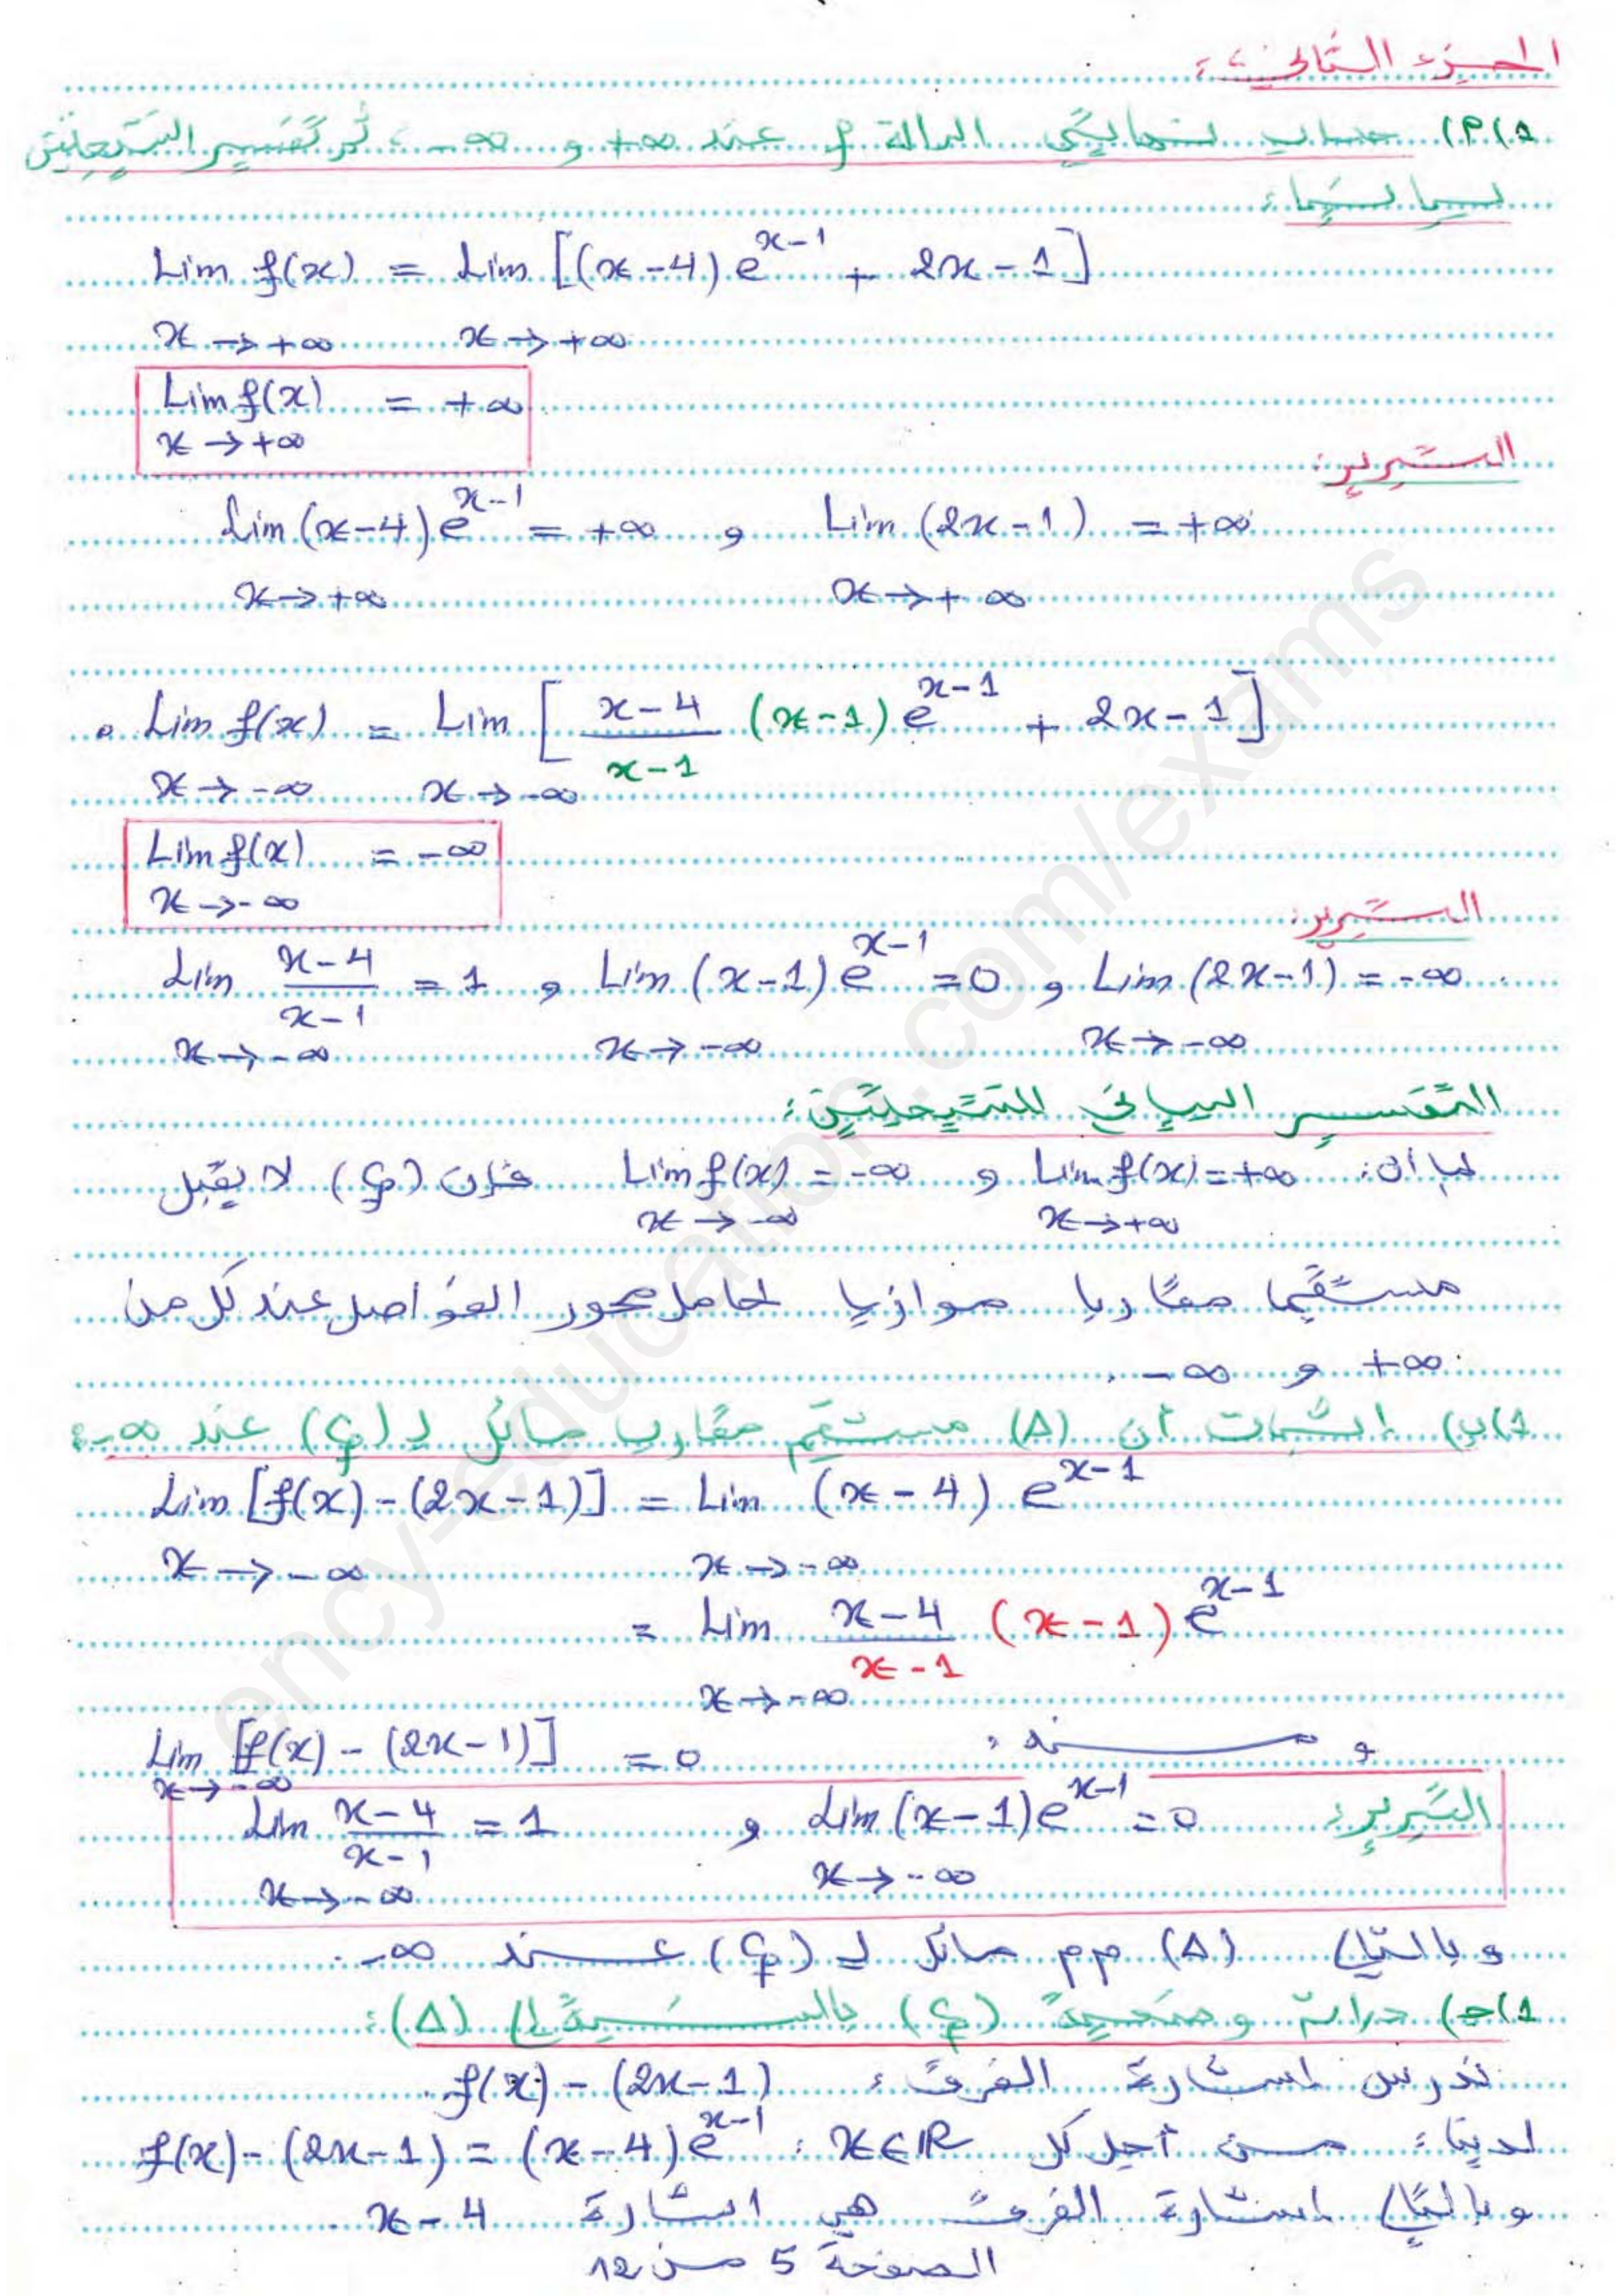 الجزء الثاني :
1) أ) حساب نهايتي الدالة f عند +∞ و -∞ ، ثم تفسير النتيجتين
بيانيا :
Lim f(x) = Lim [(x-4) e^{x-1} + 2x-1]
x → +∞ x → +∞
Lim f(x) = +∞
x → +∞
التبرير :
Lim (x-4) e^{x-1} = +∞ و Lim (2x-1) = +∞
x → +∞ x → +∞
• Lim f(x) = Lim [ \frac{x-4}{x-1} (x-1) e^{x-1} + 2x-1 ]
x → -∞ x → -∞
Lim f(x) = -∞
x → -∞
التبرير :
Lim \frac{x-4}{x-1} = 1 و Lim (x-1) e^{x-1} = 0 و Lim (2x-1) = -∞
x → -∞ x → -∞ x → -∞
التفسير البياني للنتيجتين :
بما أن : Lim f(x) = +∞ و Lim f(x) = -∞ فإن (Cf) لا يقبل
x → +∞ x → -∞
مستقيما مقاربا موازيا لحامل محور الفواصل عند كل من
+∞ و -∞ .
1) ب) إثبات أن (Δ) مستقيم مقارب مائل لـ (Cf) عند -∞ :
Lim [f(x) - (2x-1)] = Lim (x-4) e^{x-1}
x → -∞ x → -∞
= Lim \frac{x-4}{x-1} (x-1) e^{x-1}
x → -∞
و منه : Lim [f(x) - (2x-1)] = 0
x → -∞
التبرير : Lim \frac{x-4}{x-1} = 1 و Lim (x-1) e^{x-1} = 0
x → -∞ x → -∞
و بالتالي (Δ) م م مائل لـ (Cf) عند -∞ .
1) ج) دراسة وضعية (Cf) بالنسبة إلى (Δ) :
ندرس إشارة الفرق : f(x) - (2x-1) .
لدينا : من أجل كل x ∈ ℝ : f(x) - (2x-1) = (x-4) e^{x-1}
و بالتالي إشارة الفرق هي إشارة x-4 .
الصفحة 5 من 12
ency-education.com/exams